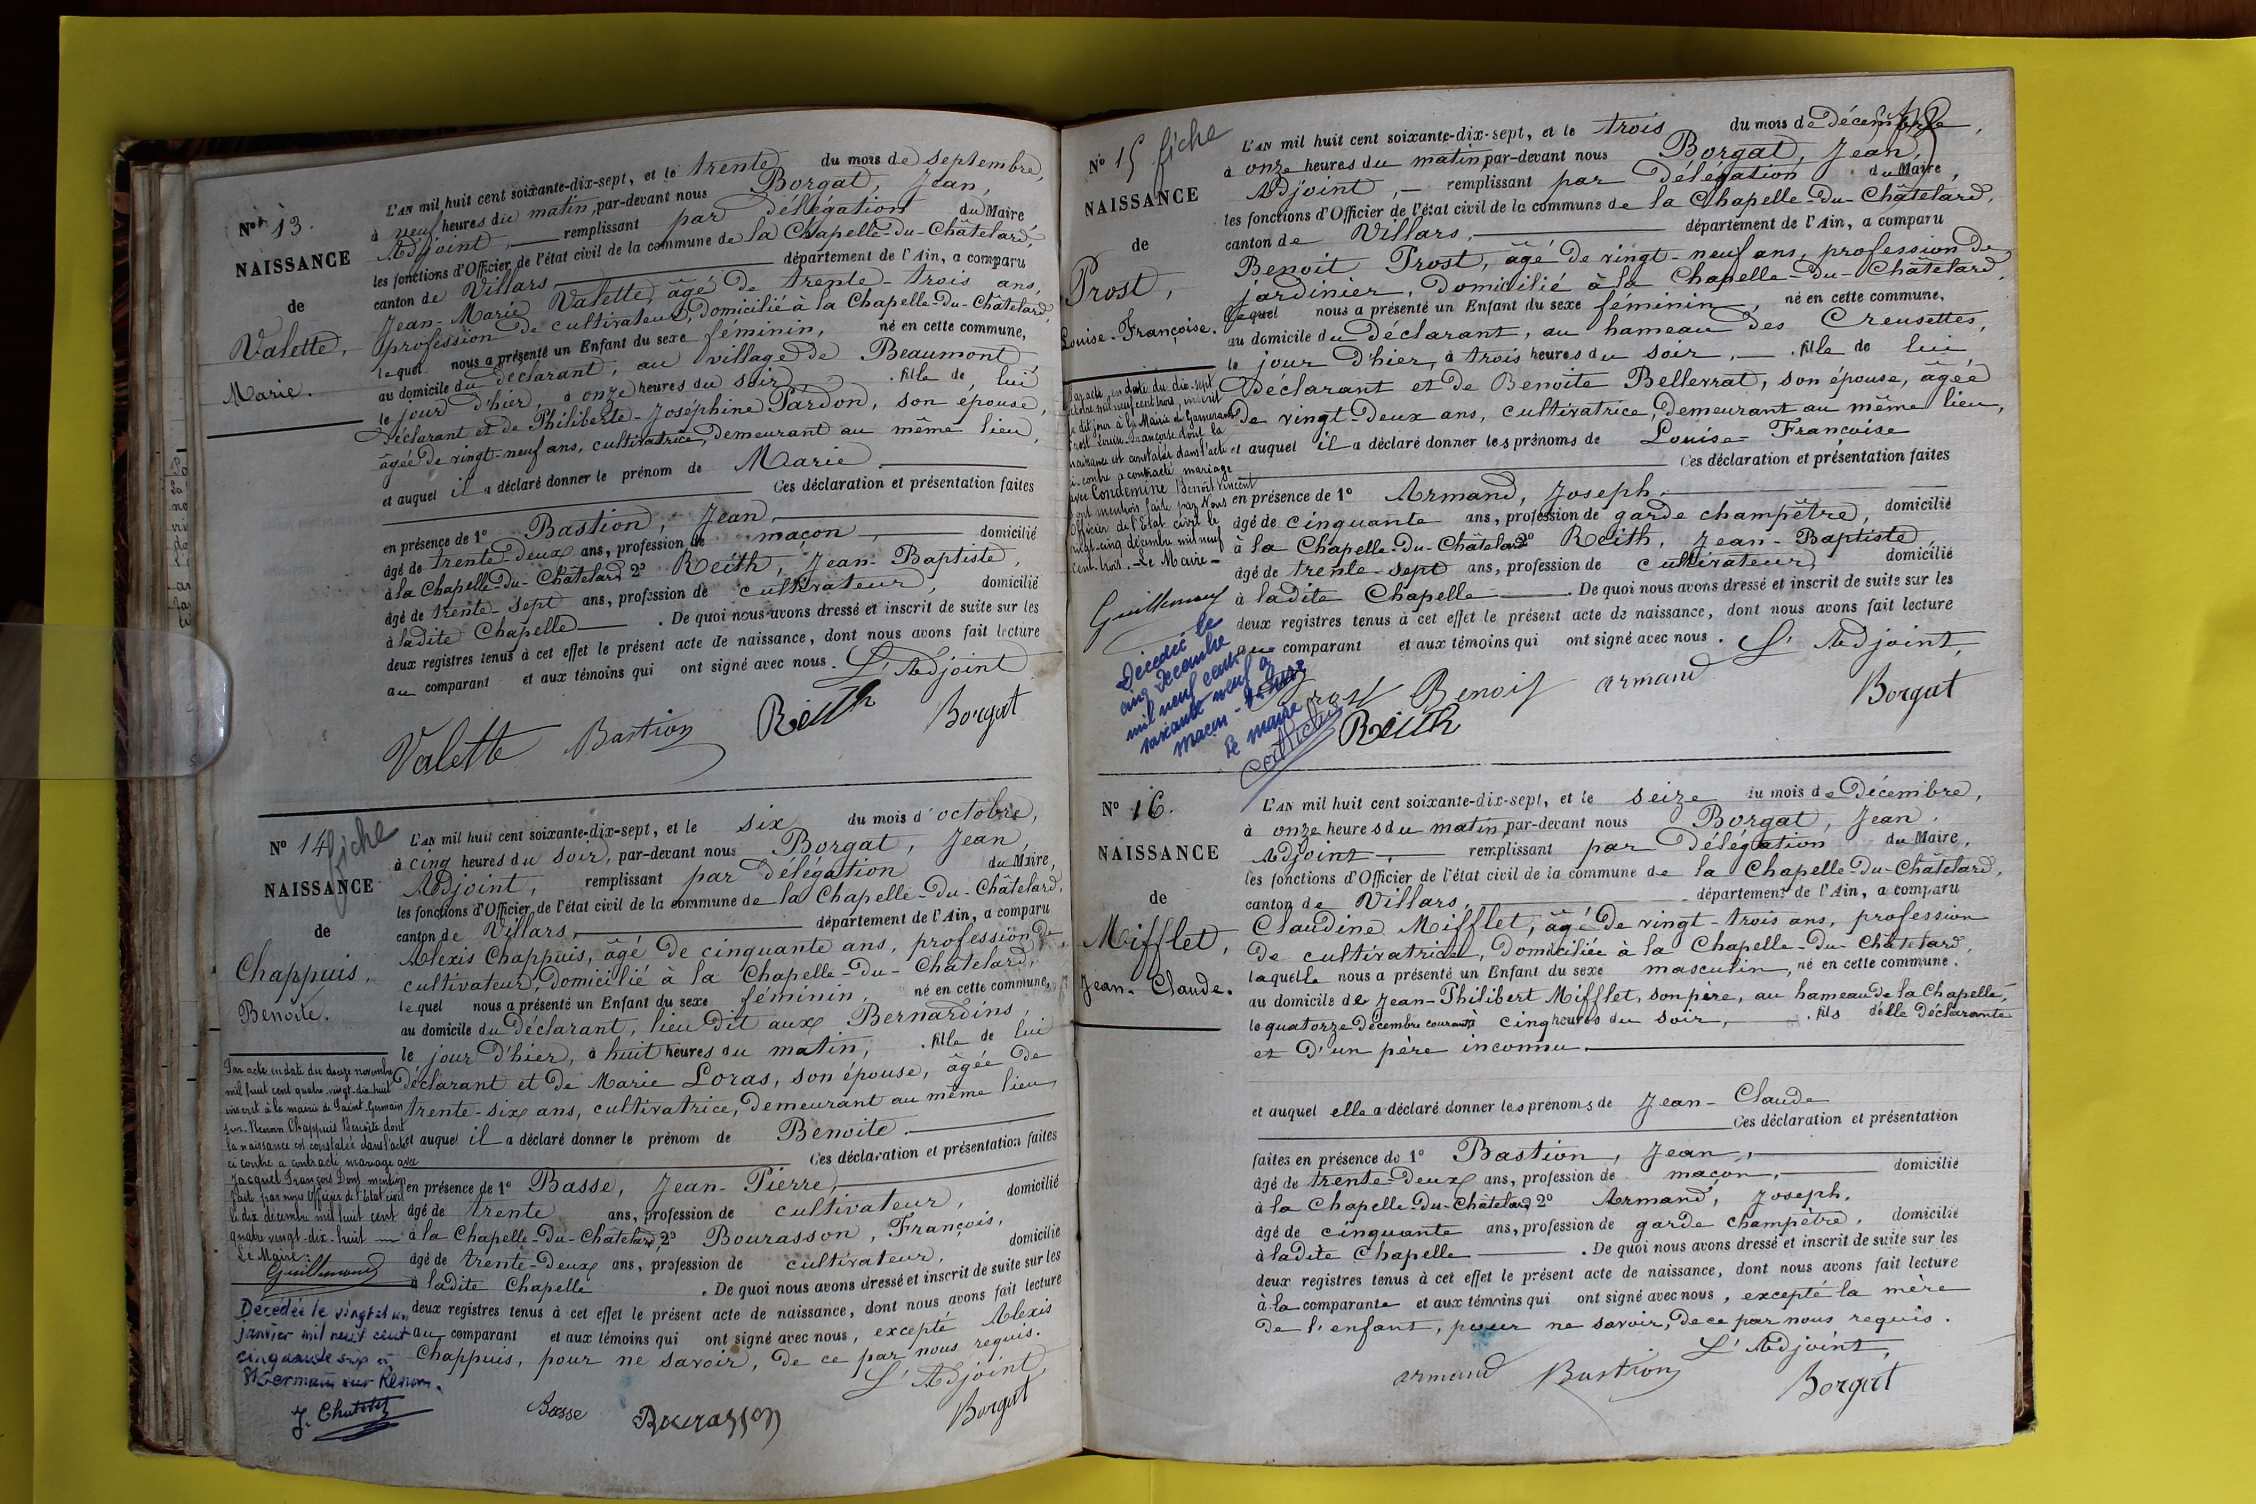 N° 13.
NAISSANCE
de
Valette,
Marie.
L'AN mil huit cent soixante-dix-sept, et le trente du mois de septembre,
à neuf heures du matin, par-devant nous Borgat, Jean,
Adjoint, remplissant par délégation du Maire
les fonctions d'Officier de l'état civil de la commune de la Chapelle-du-Châtelard,
canton de Villars, département de l'Ain, a comparu
Jean-Marie Valette, âgé de trente-trois ans,
profession de cultivateur, domicilié à la Chapelle-du-Châtelard,
lequel nous a présenté un Enfant du sexe féminin, né en cette commune,
au domicile du déclarant, au village de Beaumont,
le jour d'hier, à onze heures du soir, fille de lui
déclarant et de Philiberte-Joséphine Pardon, son épouse,
âgée de vingt-neuf ans, cultivatrice, demeurant au même lieu,
et auquel il a déclaré donner le prénom de Marie
Ces déclaration et présentation faites
en présence de 1° Bastion, Jean,
âgé de trente-deux ans, profession de maçon, domicilié
à la Chapelle-du-Châtelard 2° Reith, Jean-Baptiste,
âgé de trente-sept ans, profession de cultivateur, domicilié
à ladite Chapelle. De quoi nous avons dressé et inscrit de suite sur les
deux registres tenus à cet effet le présent acte de naissance, dont nous avons fait lecture
au comparant et aux témoins qui ont signé avec nous. L'Adjoint
Valette Bastion Reith Borgat
N° 14 fiche
NAISSANCE
de
Chappuis,
Benoite.
Par acte en date du douze novembre
mil huit cent quatre-vingt-dix-huit
inscrit à la mairie de Saint Germain
sur-Renon Chappuis Benoite dont
la naissance est constatée dans l'acte
ci contre a contracté mariage avec
Jacquet François Dont mention
faite par nous Officier de l'Etat civil
le dix décembre mil huit cent
quatre vingt-dix-huit
Le Maire:
Guillemaud
Décédée le vingt et un
janvier mil neuf cent
cinquante six à
St Germain sur Renon.
L'AN mil huit cent soixante-dix-sept, et le six du mois d'octobre,
à cinq heures du soir, par-devant nous Borgat, Jean,
Adjoint, remplissant par délégation du Maire,
les fonctions d'Officier de l'état civil de la commune de la Chapelle-du-Châtelard,
canton de Villars, département de l'Ain, a comparu
Alexis Chappuis, âgé de cinquante ans, profession de
cultivateur, domicilié à la Chapelle-du-Châtelard,
lequel nous a présenté un Enfant du sexe féminin, né en cette commune,
au domicile du déclarant, lieu dit aux Bernardins,
le jour d'hier, à huit heures du matin, fille de lui
déclarant et de Marie Loras, son épouse, âgée de
trente-six ans, cultivatrice, demeurant au même lieu,
et auquel il a déclaré donner le prénom de Benoite.
Ces déclaration et présentation faites
en présence de 1° Basse, Jean-Pierre,
âgé de trente ans, profession de cultivateur, domicilié
à la Chapelle-du-Châtelard, 2° Bourasson, François,
âgé de trente-deux ans, profession de cultivateur, domicilié
à ladite Chapelle. De quoi nous avons dressé et inscrit de suite sur les
deux registres tenus à cet effet le présent acte de naissance, dont nous avons fait lecture
au comparant et aux témoins qui ont signé avec nous, excepté Alexis
Chappuis, pour ne savoir, de ce par nous requis.
L'Adjoint,
Basse Bourasson Borgat
N° 15 fiche
NAISSANCE
de
Prost,
Louise-Françoise.
Par acte en date du dix-sept
octobre mil neuf cent trois, inscrit
le dit jour à la Mairie de
Prost Louise-Françoise dont la
naissance est constatée dans l'acte
ci-contre a contracté mariage
avec Condemine Benoît Vincent
dont mention faite par Nous
Officier de l'Etat civil le
vingt-cinq décembre mil neuf
cent trois. Le Maire
Décédée le
cinq décembre
mil neuf cent
soixante neuf à
Macon
Le maire
L'AN mil huit cent soixante-dix-sept, et le trois du mois de Décembre,
à onze heures du matin par-devant nous Borgat, Jean,
Adjoint, remplissant par délégation du Maire,
les fonctions d'Officier de l'état civil de la commune de la Chapelle-du-Châtelard,
canton de Villars, département de l'Ain, a comparu
Benoit Prost, âgé de vingt-neuf ans, profession de
jardinier, domicilié à la Chapelle-du-Châtelard,
lequel nous a présenté un Enfant du sexe féminin, né en cette commune,
au domicile du déclarant, au hameau des Creusettes,
le jour d'hier, à trois heures du soir, fille de lui
déclarant et de Benoite Bellevrat, son épouse, âgée
de vingt-deux ans, cultivatrice, demeurant au même lieu,
et auquel il a déclaré donner les prénoms de Louise-Françoise
Ces déclaration et présentation faites
en présence de 1° Armand, Joseph,
âgé de cinquante ans, profession de garde champêtre, domicilié
à la Chapelle-du-Châtelard 2° Reith, Jean-Baptiste,
âgé de trente-sept ans, profession de cultivateur, domicilié
à ladite Chapelle. De quoi nous avons dressé et inscrit de suite sur les
deux registres tenus à cet effet le présent acte de naissance, dont nous avons fait lecture
au comparant et aux témoins qui ont signé avec nous. L'Adjoint,
Prost Benoit Armand Borgat
Reith
N° 16.
NAISSANCE
de
Mifflet,
Jean-Claude.
L'AN mil huit cent soixante-dix-sept, et le seize du mois de Décembre,
à onze heures du matin par-devant nous Borgat, Jean,
Adjoint, remplissant par délégation du Maire,
les fonctions d'Officier de l'état civil de la commune de la Chapelle-du-Châtelard,
canton de Villars, département de l'Ain, a comparu
Claudine Mifflet, âgé de vingt-trois ans, profession
de cultivatrice, domiciliée à la Chapelle-du-Châtelard,
laquelle nous a présenté un Enfant du sexe masculin, né en cette commune,
au domicile de Jean-Philibert Mifflet, son père, au hameau de la Chapelle,
le quatorze Décembre courant à cinq heures du soir, fils d'elle déclarante
et d'un père inconnu.
et auquel elle a déclaré donner les prénoms de Jean-Claude
Ces déclaration et présentation
faites en présence de 1° Bastion, Jean,
âgé de trente-deux ans, profession de maçon, domicilié
à la Chapelle-du-Châtelard 2° Armand, Joseph,
âgé de cinquante ans, profession de garde champêtre, domicilié
à ladite Chapelle. De quoi nous avons dressé et inscrit de suite sur les
deux registres tenus à cet effet le présent acte de naissance, dont nous avons fait lecture
à la comparante et aux témoins qui ont signé avec nous, excepté la mère
de l'enfant, pour ne savoir, de ce par nous requis.
L'Adjoint,
Armand Bastion Borgat